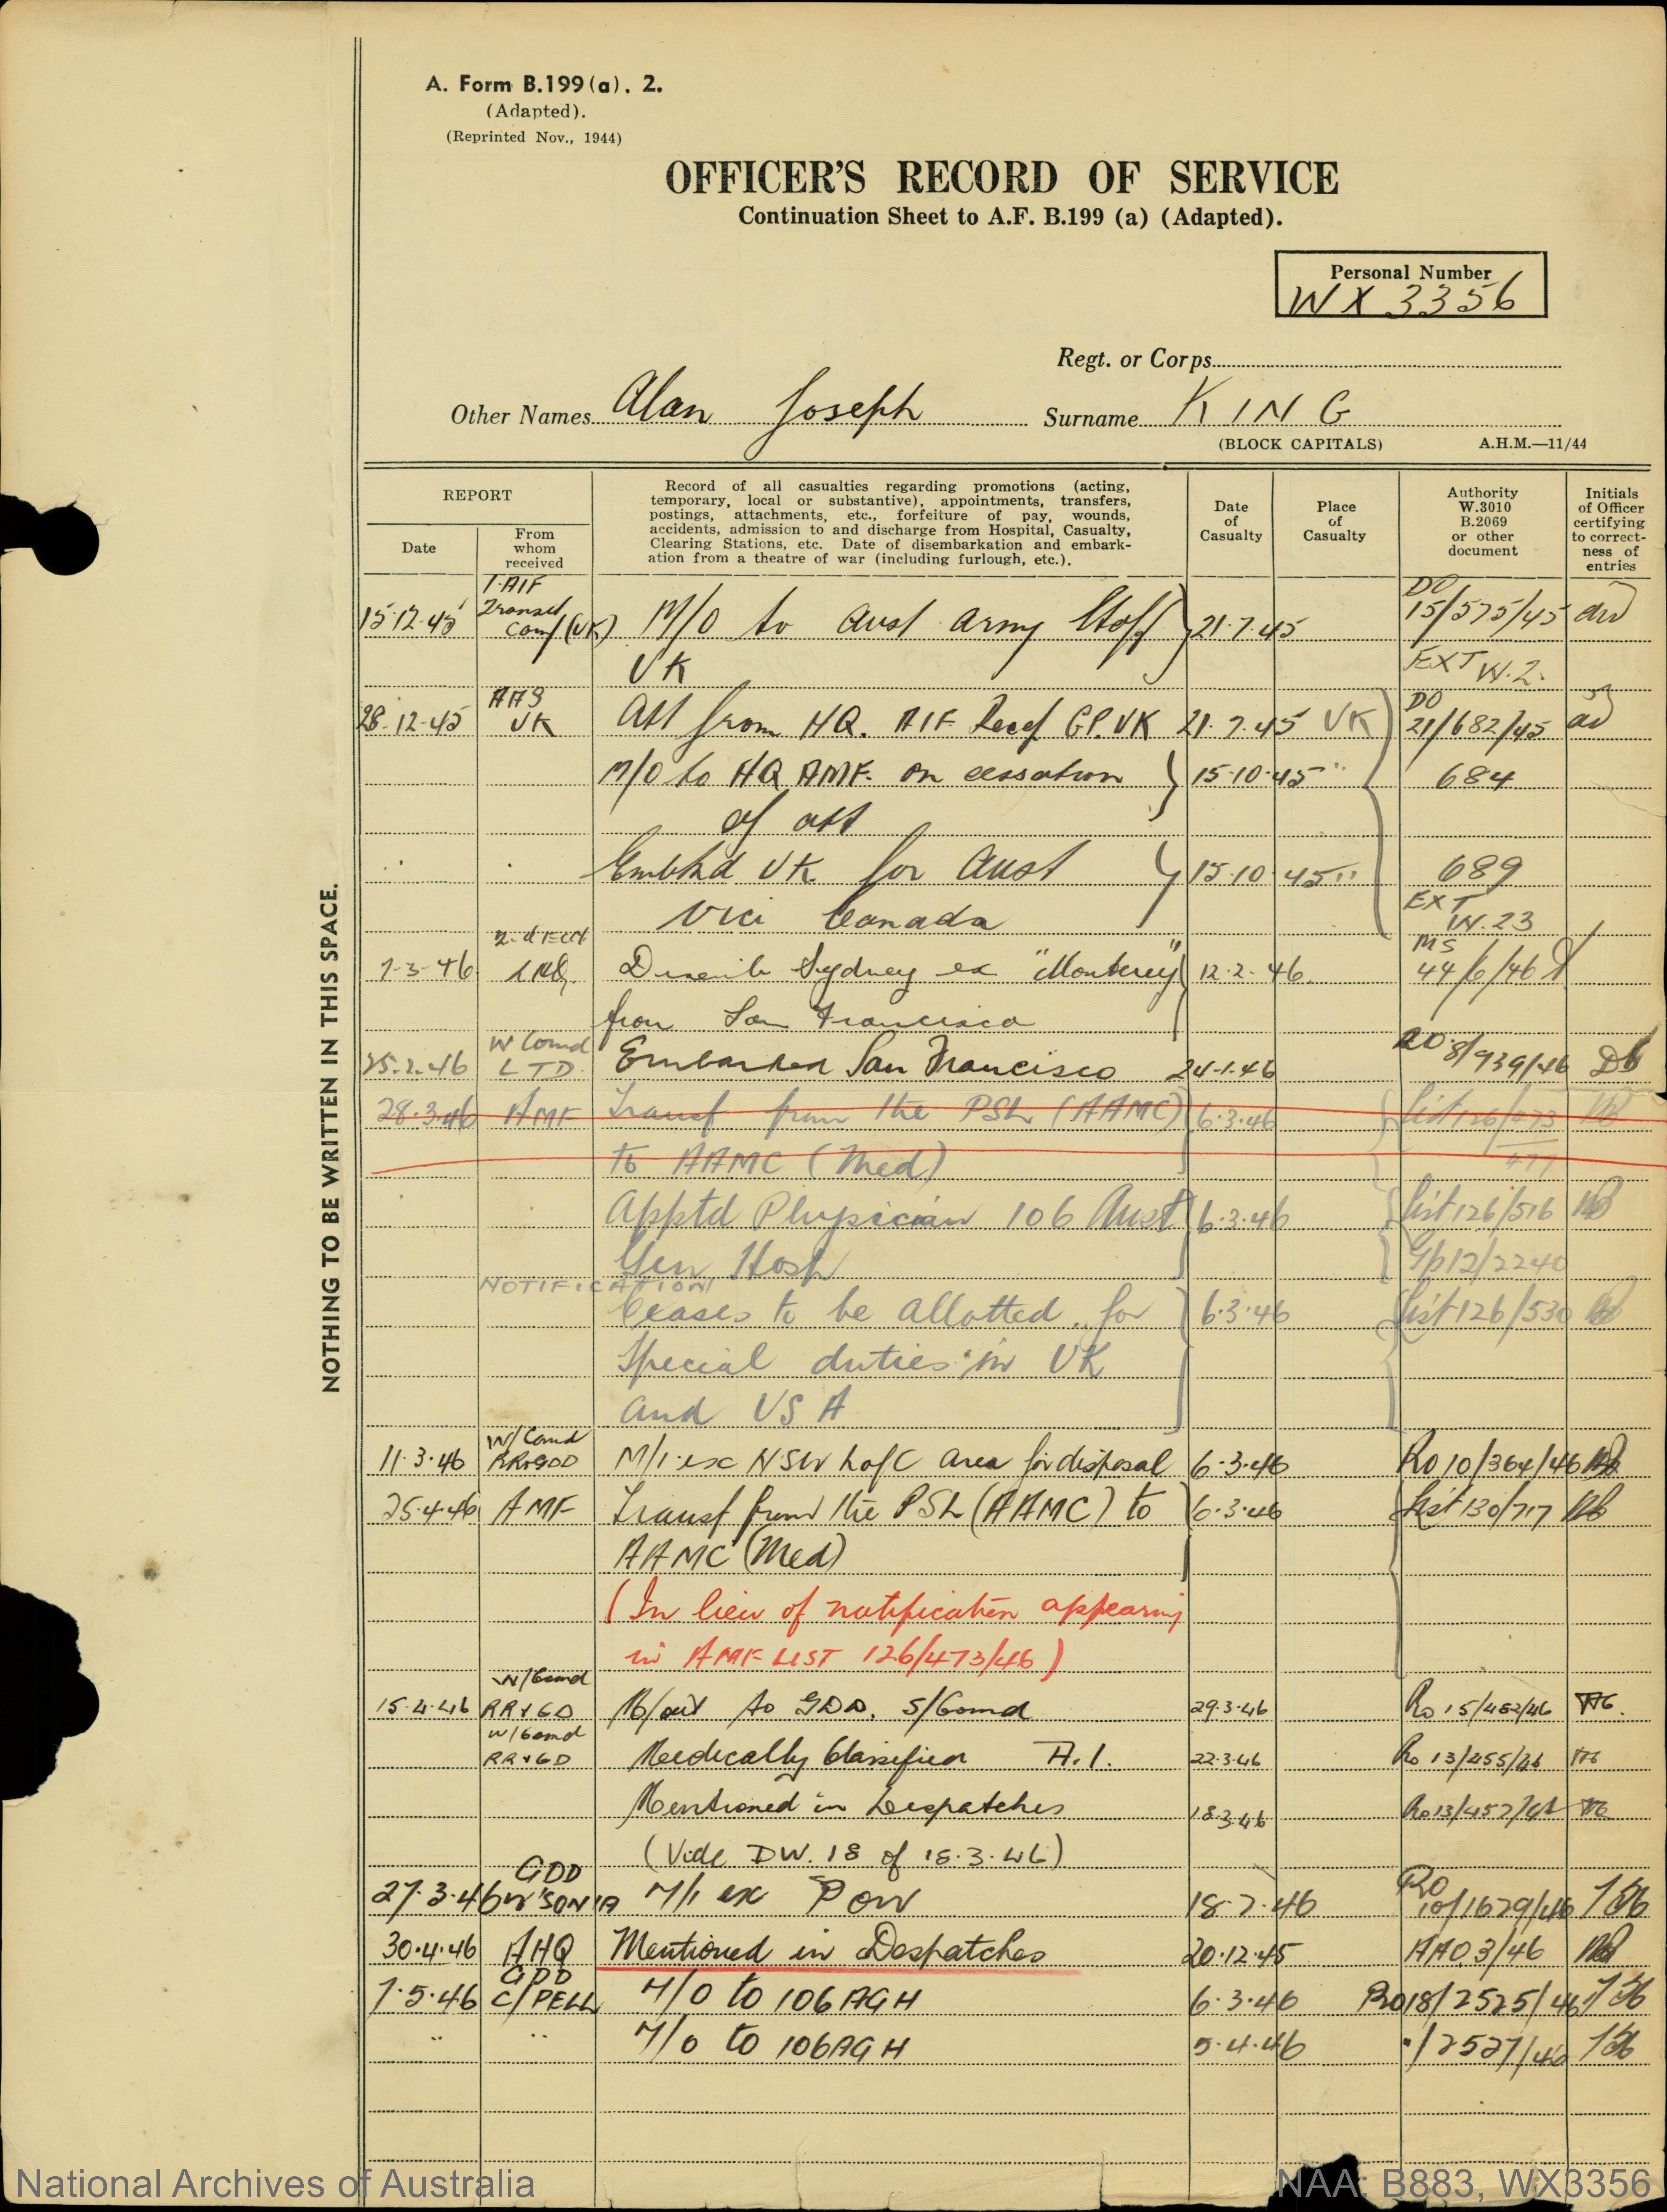 A. Form B.199(a). 2.
(Adapted).
(Reprinted Nov., 1944)
OFFICER'S RECORD OF SERVICE
Continuation Sheet to A.F. B.199 (a) (Adapted).
Personal Number
WX 3356
Regt. or Corps
Other Names Alan Joseph Surname KING
(BLOCK CAPITALS) A.H.M.—11/44
NOTHING TO BE WRITTEN IN THIS SPACE.
REPORT
Date
From whom received
Record of all casualties regarding promotions (acting,
temporary, local or substantive), appointments, transfers,
postings, attachments, etc., forfeiture of pay, wounds,
accidents, admission to and discharge from Hospital, Casualty,
Clearing Stations, etc. Date of disembarkation and embark-
ation from a theatre of war (including furlough, etc.).
Date of Casualty
Place of Casualty
Authority W.3010 B.2069 or other document
Initials of Officer certifying to correct-ness of entries
1 AIF DO
15.12.45 Transit Camp (UK) M/O to Aust Army Staff 21.7.45 15/575/45
UK EXT W.2.
AAS DO
28.12.45 UK Att from HQ. AIF Recep GP. UK 21.7.45 UK 21/682/45
M/O to HQ AMF. on cessation 15.10.45 " 684
of att
Embkd UK for Aust 15.10.45 " 689
via Canada EXT W.23
MS
7.3.46 Disemb Sydney ex "Monterey" 12.2.46 44/6/46
from San Francisco
W Comd
25.2.46 LTD Embarked San Francisco 24.1.46 RO 8/939/46
28.3.46 AMF Transf from the PSL (AAMC) 6.3.46 List 126/473
to AAMC (Med) 477
Apptd Physician 106 Aust 6.3.46 List 126/516
Gen Hosp Gp12/2240
NOTIFICATION
Ceases to be allotted for 6.3.46 List 126/530
special duties in UK
and USA
W/Comd
11.3.46 RR&GDD M/I ex NSW L of C Area for disposal 6.3.46 Ro 10/364/46
25.4.46 AMF Transf from the PSL (AAMC) to 6.3.46 List 130/717
AAMC (Med)
(In lieu of notification appearing
in AMF LIST 126/473/46)
W/Comd
15.4.46 RR&GD M/out to GDD. S/Comd 29.3.46 Ro 15/482/46
W/Comd
RR&GD Medically Classified A.1. 22.3.46 Ro 13/455/46
Mentioned in Despatches 18.3.46 Ro 13/457/46
(Vide DW. 18 of 18.3.46)
GDD RO
27.3.46 W'SON'A M/I ex POW 18.2.46 10/1629/46
30.4.46 AHQ Mentioned in Despatches 20.12.45 AAO.3/46
GDD
7.5.46 C/PELL M/O to 106 AGH 6.3.46 RO18/2525/46
" " M/O to 106 AGH 5.4.46 "/2527/46
National Archives of Australia
NAA: B883, WX3356